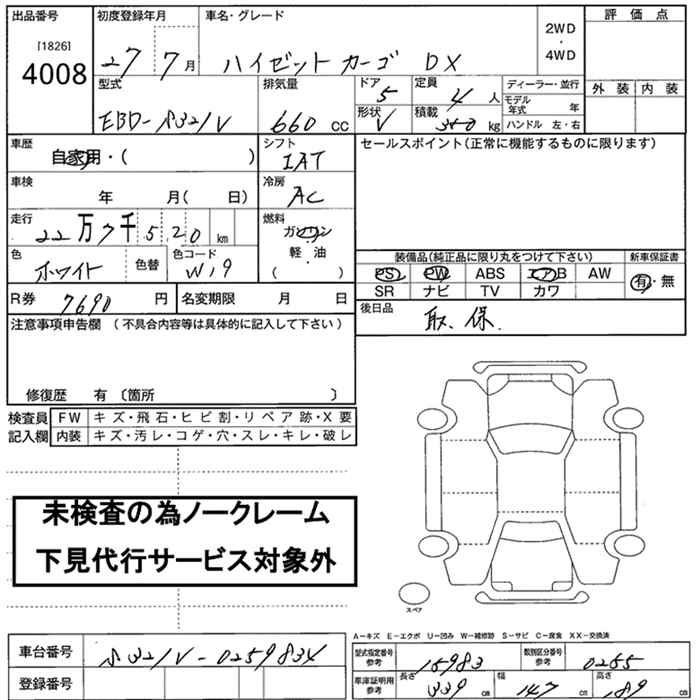 出品番号 初度登録年月 車名・グレード 評価点
[1826]
4008
27 7月 ハイゼットカーゴ DX
2WD
・
4WD
外装 内装
型式 排気量 ドア 定員 ディーラー・並行
EBD-S321V 660 CC 5 4人
モデル年式 年
形状 積載
V 350 kg ハンドル 左・右
車歴 シフト セールスポイント(正常に機能するものに限ります)
自家用・( ) IAT
車検 冷房
年 月( 日) AC
走行 燃料
22万7千520km ガソリン
軽・油
( )
色 色替 色コード
ホワイト W19
装備品(純正品に限り丸をつけて下さい) 新車保証書
PS PW ABS エアB AW
SR ナビ TV カワ
有・無
R券 7690円 名変期限 月 日
後日品
取、保.
注意事項申告欄 (不具合内容等は具体的に記入して下さい)
修復歴 有 〔箇所 〕
検査員記入欄
FW キズ・飛石・ヒビ割・リペア跡・X要
内装 キズ・汚レ・コゲ・穴・スレ・キレ・破レ
未検査の為ノークレーム
下見代行サービス対象外
スペア
A−キズ E−エクボ U−凹み W−補修跡 S−サビ C−腐食 XX−交換済
車台番号 S321V-0259834
型式指定番号参考 15983 類別区分番号参考 0255
登録番号
車庫証明用参考 長さ 339 cm 幅 147 cm 高さ 189 cm